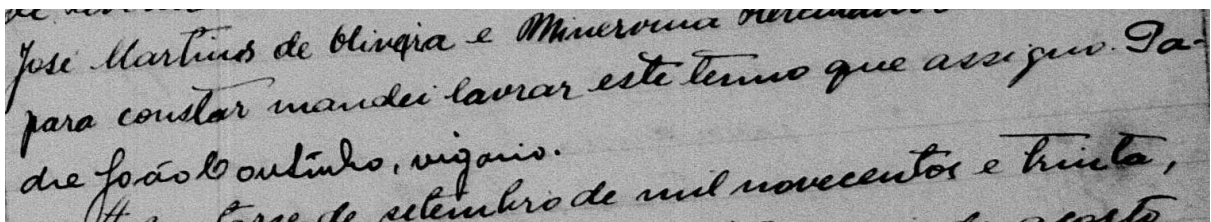 José Martins de Oliveira e Minervina
para constar mandei lavrar este termo que assigno. Pa-
dre João Coutinho, vigario.
de setembro de mil novecentos e trinta,